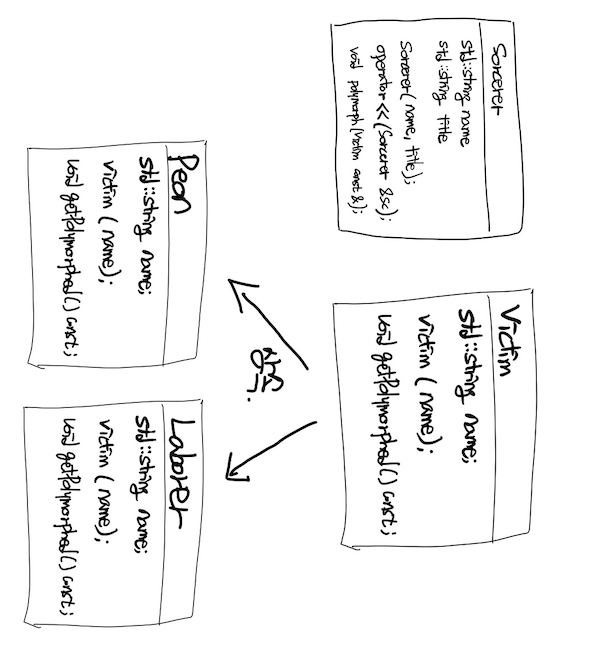 Sorcerer
std::string name
std::string title
Sorcerer(name, title);
operator <<(Sorcerer &sc);
void polymorph(Victim const &);
Victim
std::string name;
victim (name);
void getPolymorphed() const;
상속.
Peon
std::string name;
victim (name);
void getPolymorphed() const;
Laborer
std::string name;
victim (name);
void getPolymorphed() const;